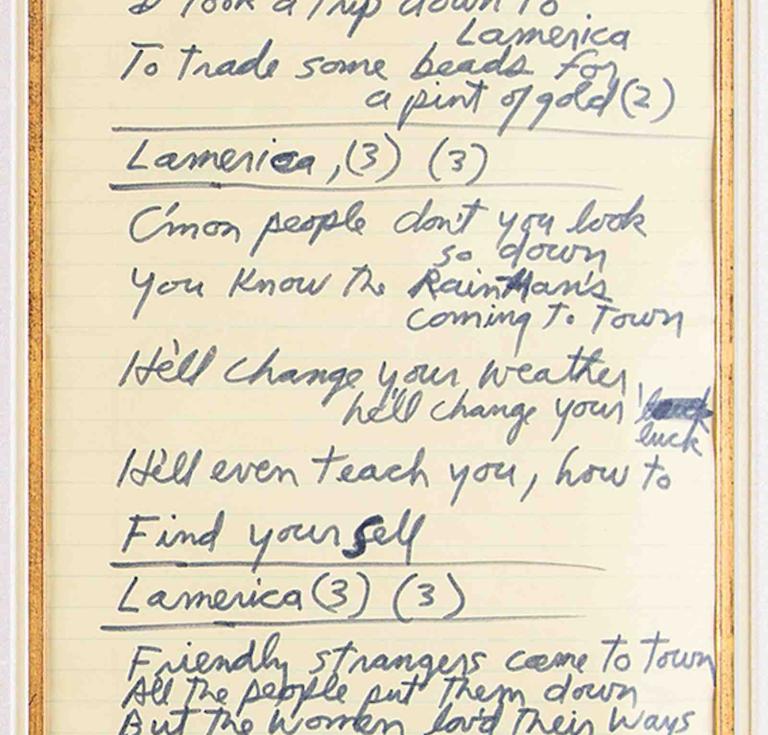 I took a trip down to
Lamerica
To trade some beads for
a pint of gold (2)
Lamerica, (3) (3)
C'mon people don't you look
so down
You know the Rain Man's
coming to town
He'll change your weather,
he'll change your
luck
He'll even teach you, how to
Find yourself
Lamerica (3) (3)
Friendly strangers came to town
All the people put them down
But the women lov'd their ways